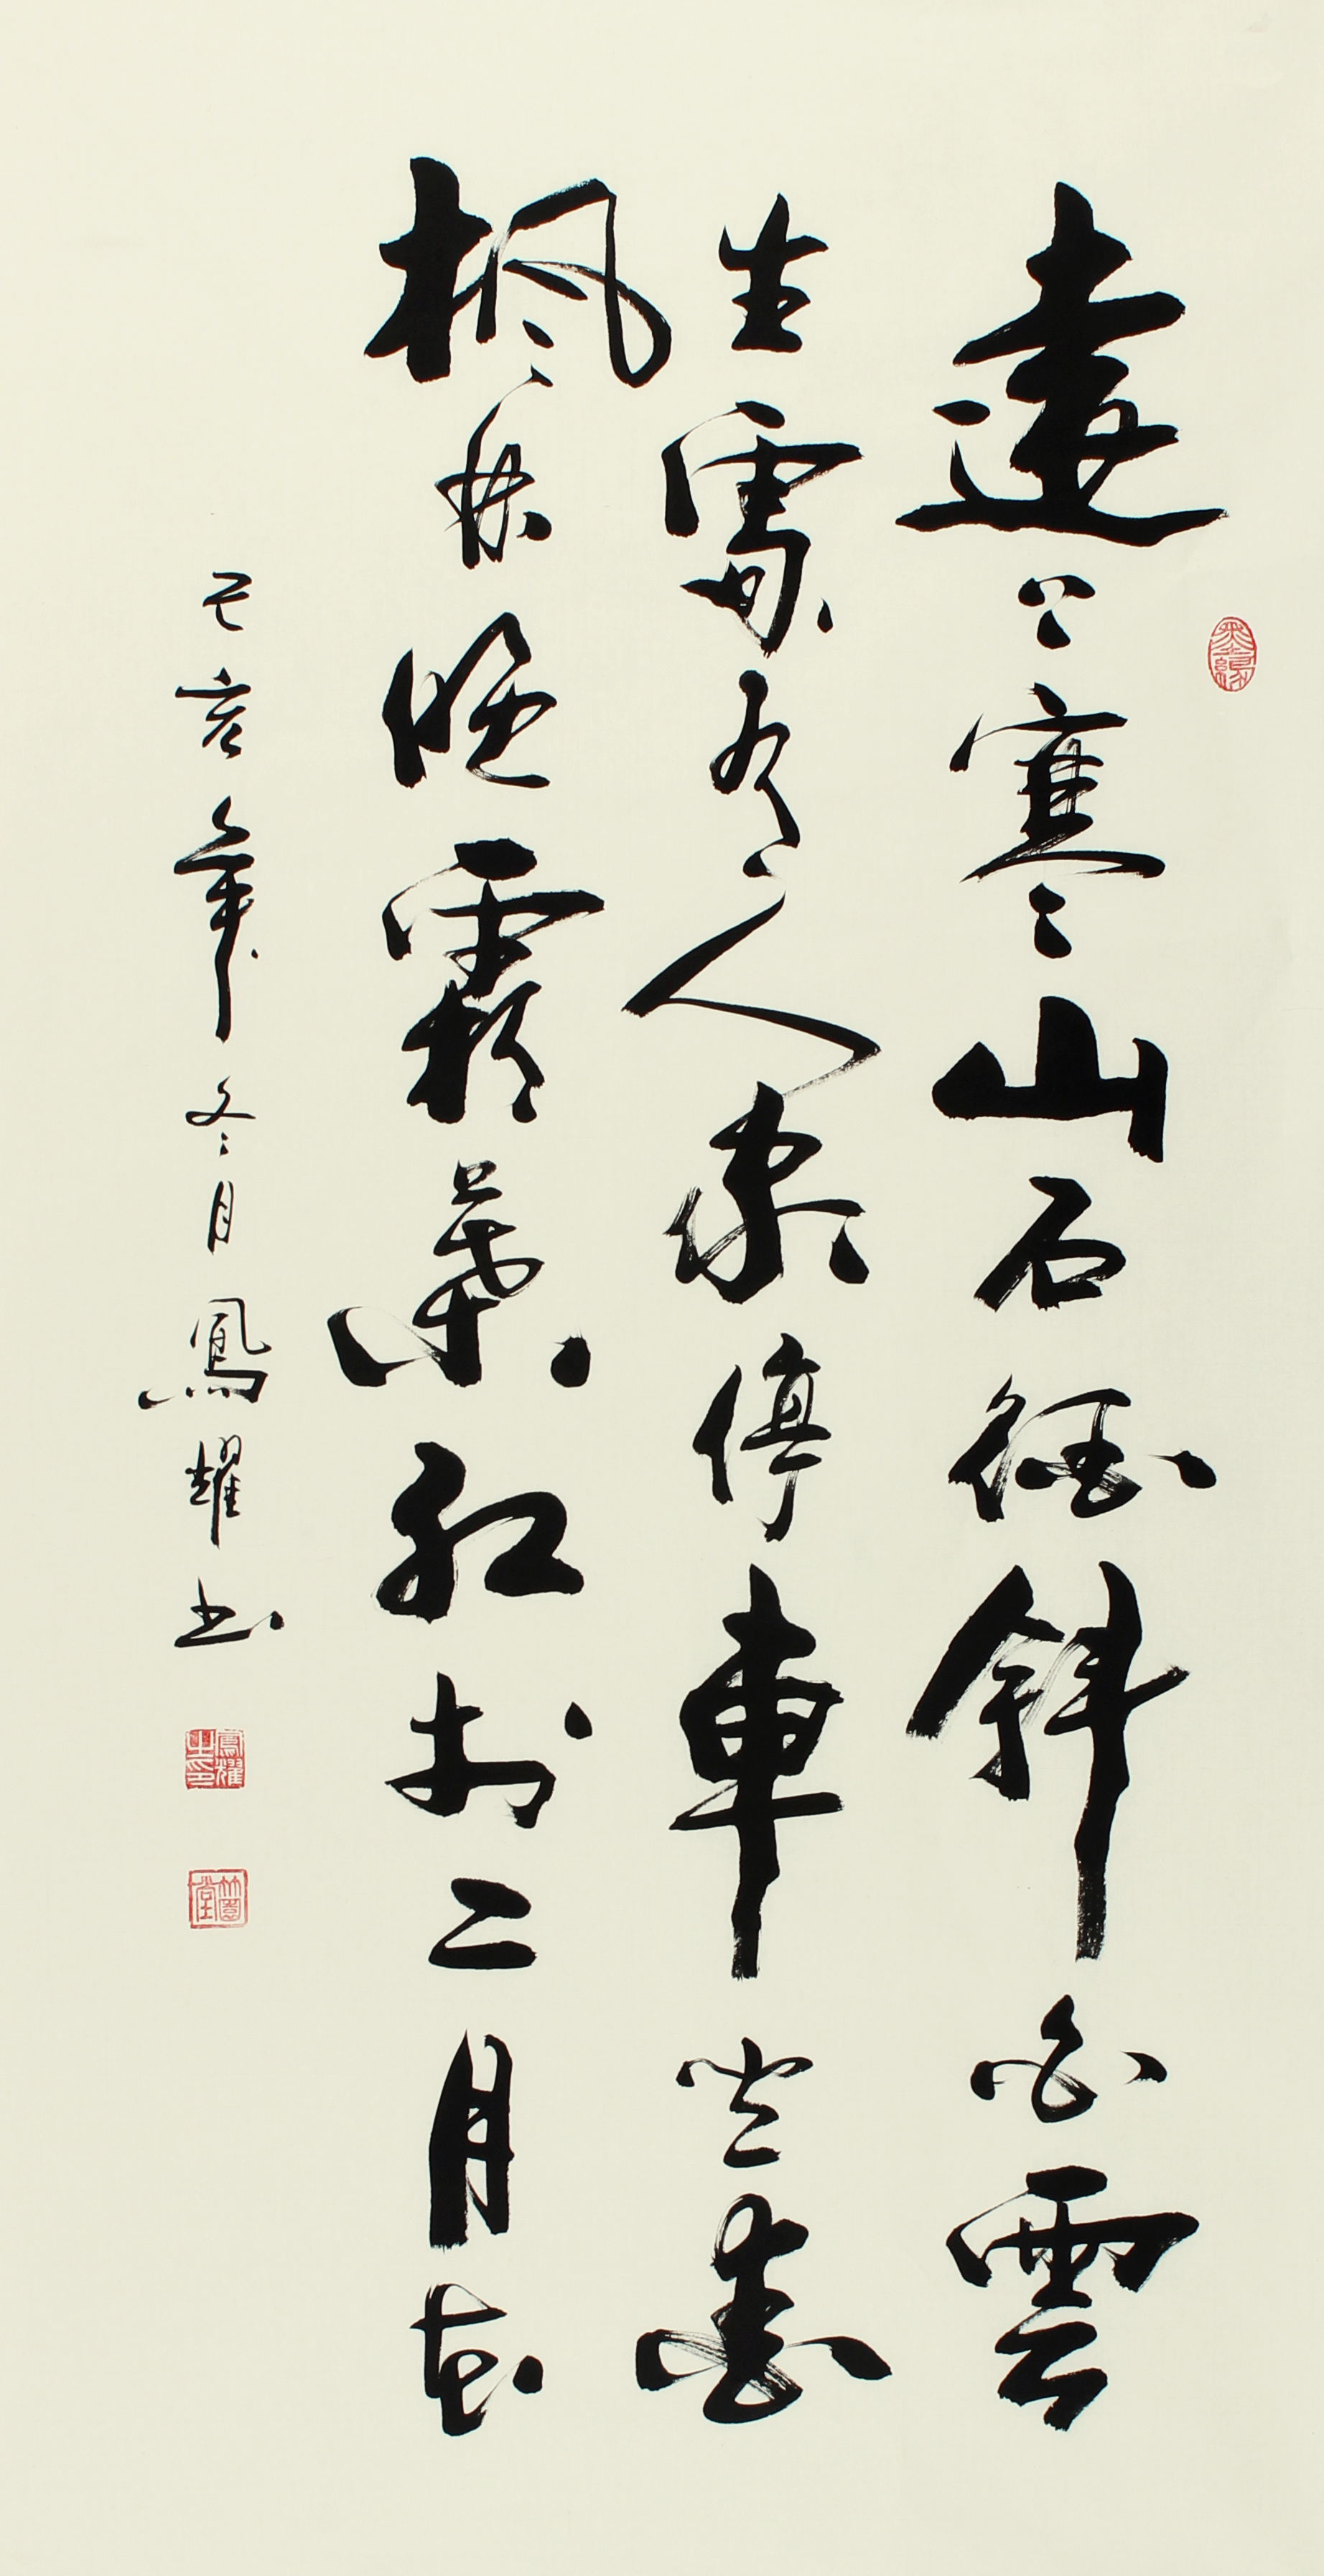 遠上寒山石徑斜白雲
生處有人家停車坐愛
楓林晚霜葉紅於二月花
己亥年冬月鳳耀書
墨緣
鳳耀之印